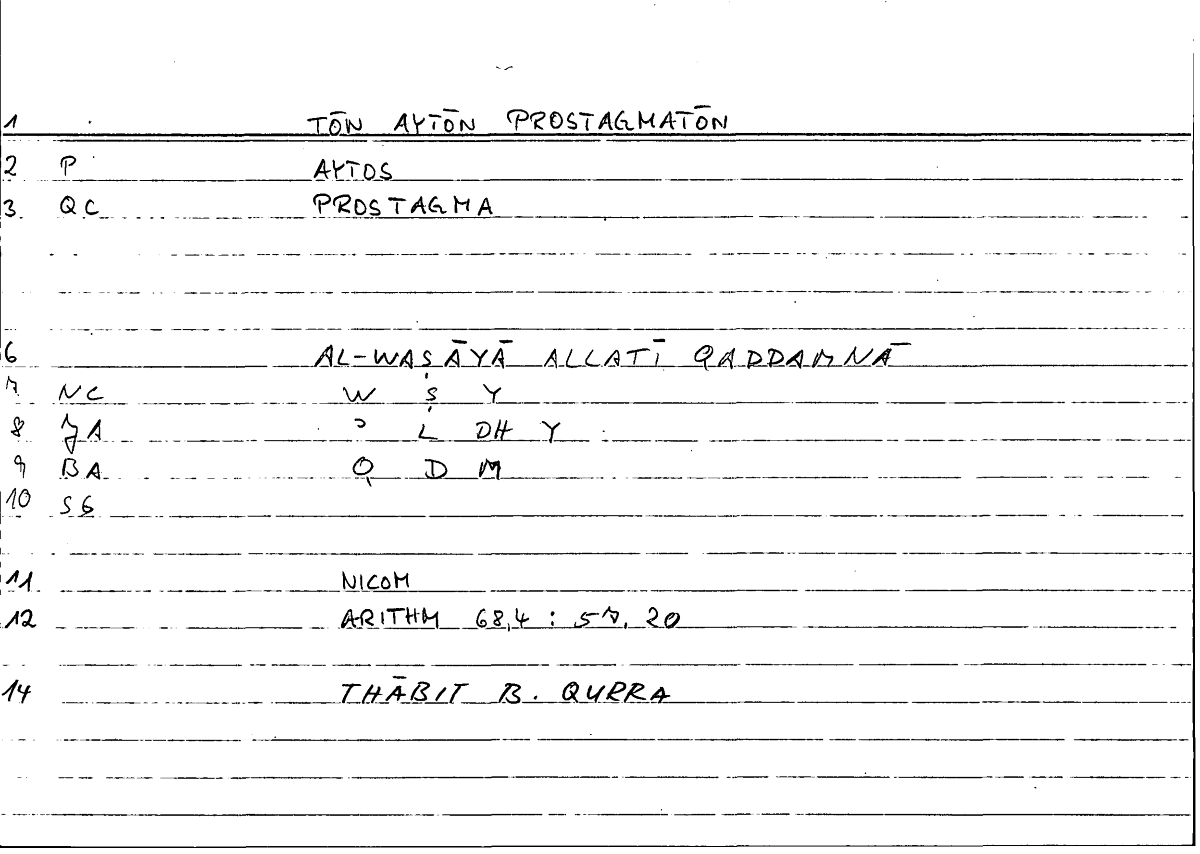 1 TŌN AYTŌN PROSTAGMATŌN
2 P AYTOS
3 QC PROSTAGMA
6 AL-WAṢĀYĀ ALLATĪ QADDAMNĀ
7 NC W Ṣ Y
8 JA ʾ L DH Y
9 BA Q D M
10 SG
11 NICOM
12 ARITHM 68,4 : 57, 20
14 THĀBIT B. QURRA